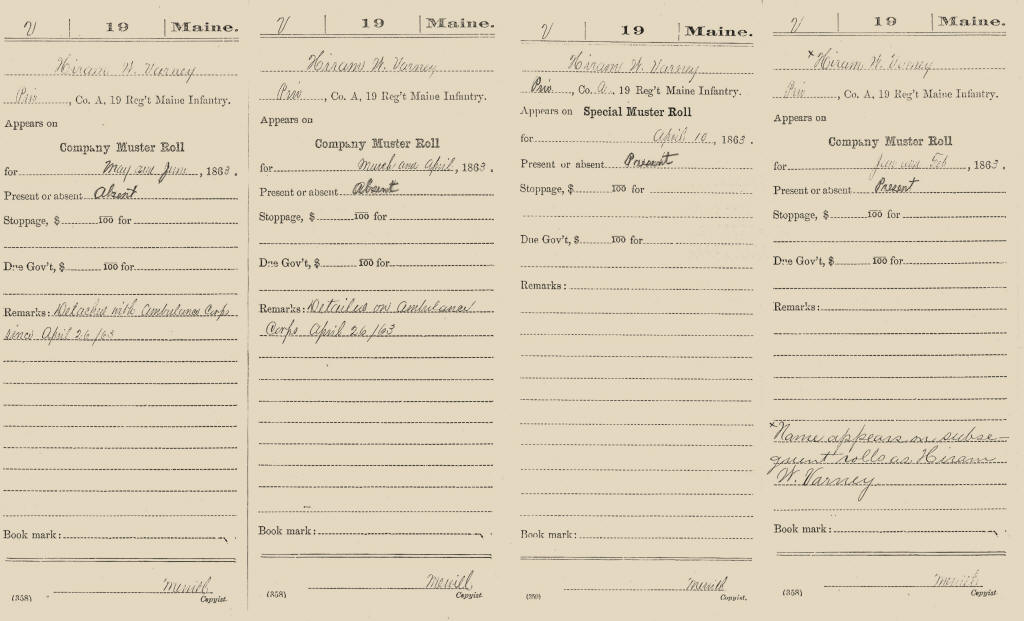 V | 19 | Maine.
Hiram W. Varney
Priv, Co. A, 19 Reg't Maine Infantry.
Appears on
Company Muster Roll
for May and June, 1863.
Present or absent Absent
Stoppage, $ 100 for
Due Gov't, $ 100 for
Remarks: Detached with Ambulance Corps
since April 26/63
Book mark:
Merrill
(358) Copyist.
V | 19 | Maine.
Hiram W. Varney
Priv, Co. A, 19 Reg't Maine Infantry.
Appears on
Company Muster Roll
for March and April, 1863.
Present or absent Absent
Stoppage, $ 100 for
Due Gov't, $ 100 for
Remarks: Detailed on Ambulance
Corps April 26/63
Book mark:
Merrill
(358) Copyist.
V | 19 | Maine.
Hiram W. Varney
Priv, Co. A, 19 Reg't Maine Infantry.
Appears on Special Muster Roll
for April 10, 1863.
Present or absent Present
Stoppage, $ 100 for
Due Gov't, $ 100 for
Remarks:
Book mark:
Merrill
Copyist.
V | 19 | Maine.
x Hiram W.
Priv, Co. A, 19 Reg't Maine Infantry.
Appears on
Company Muster Roll
for Jan and Feb, 1863.
Present or absent Present
Stoppage, $ 100 for
Due Gov't, $ 100 for
Remarks:
x Name appears on subse-
quent rolls as Hiram
W. Varney
Book mark:
Merrill
(358) Copyist.